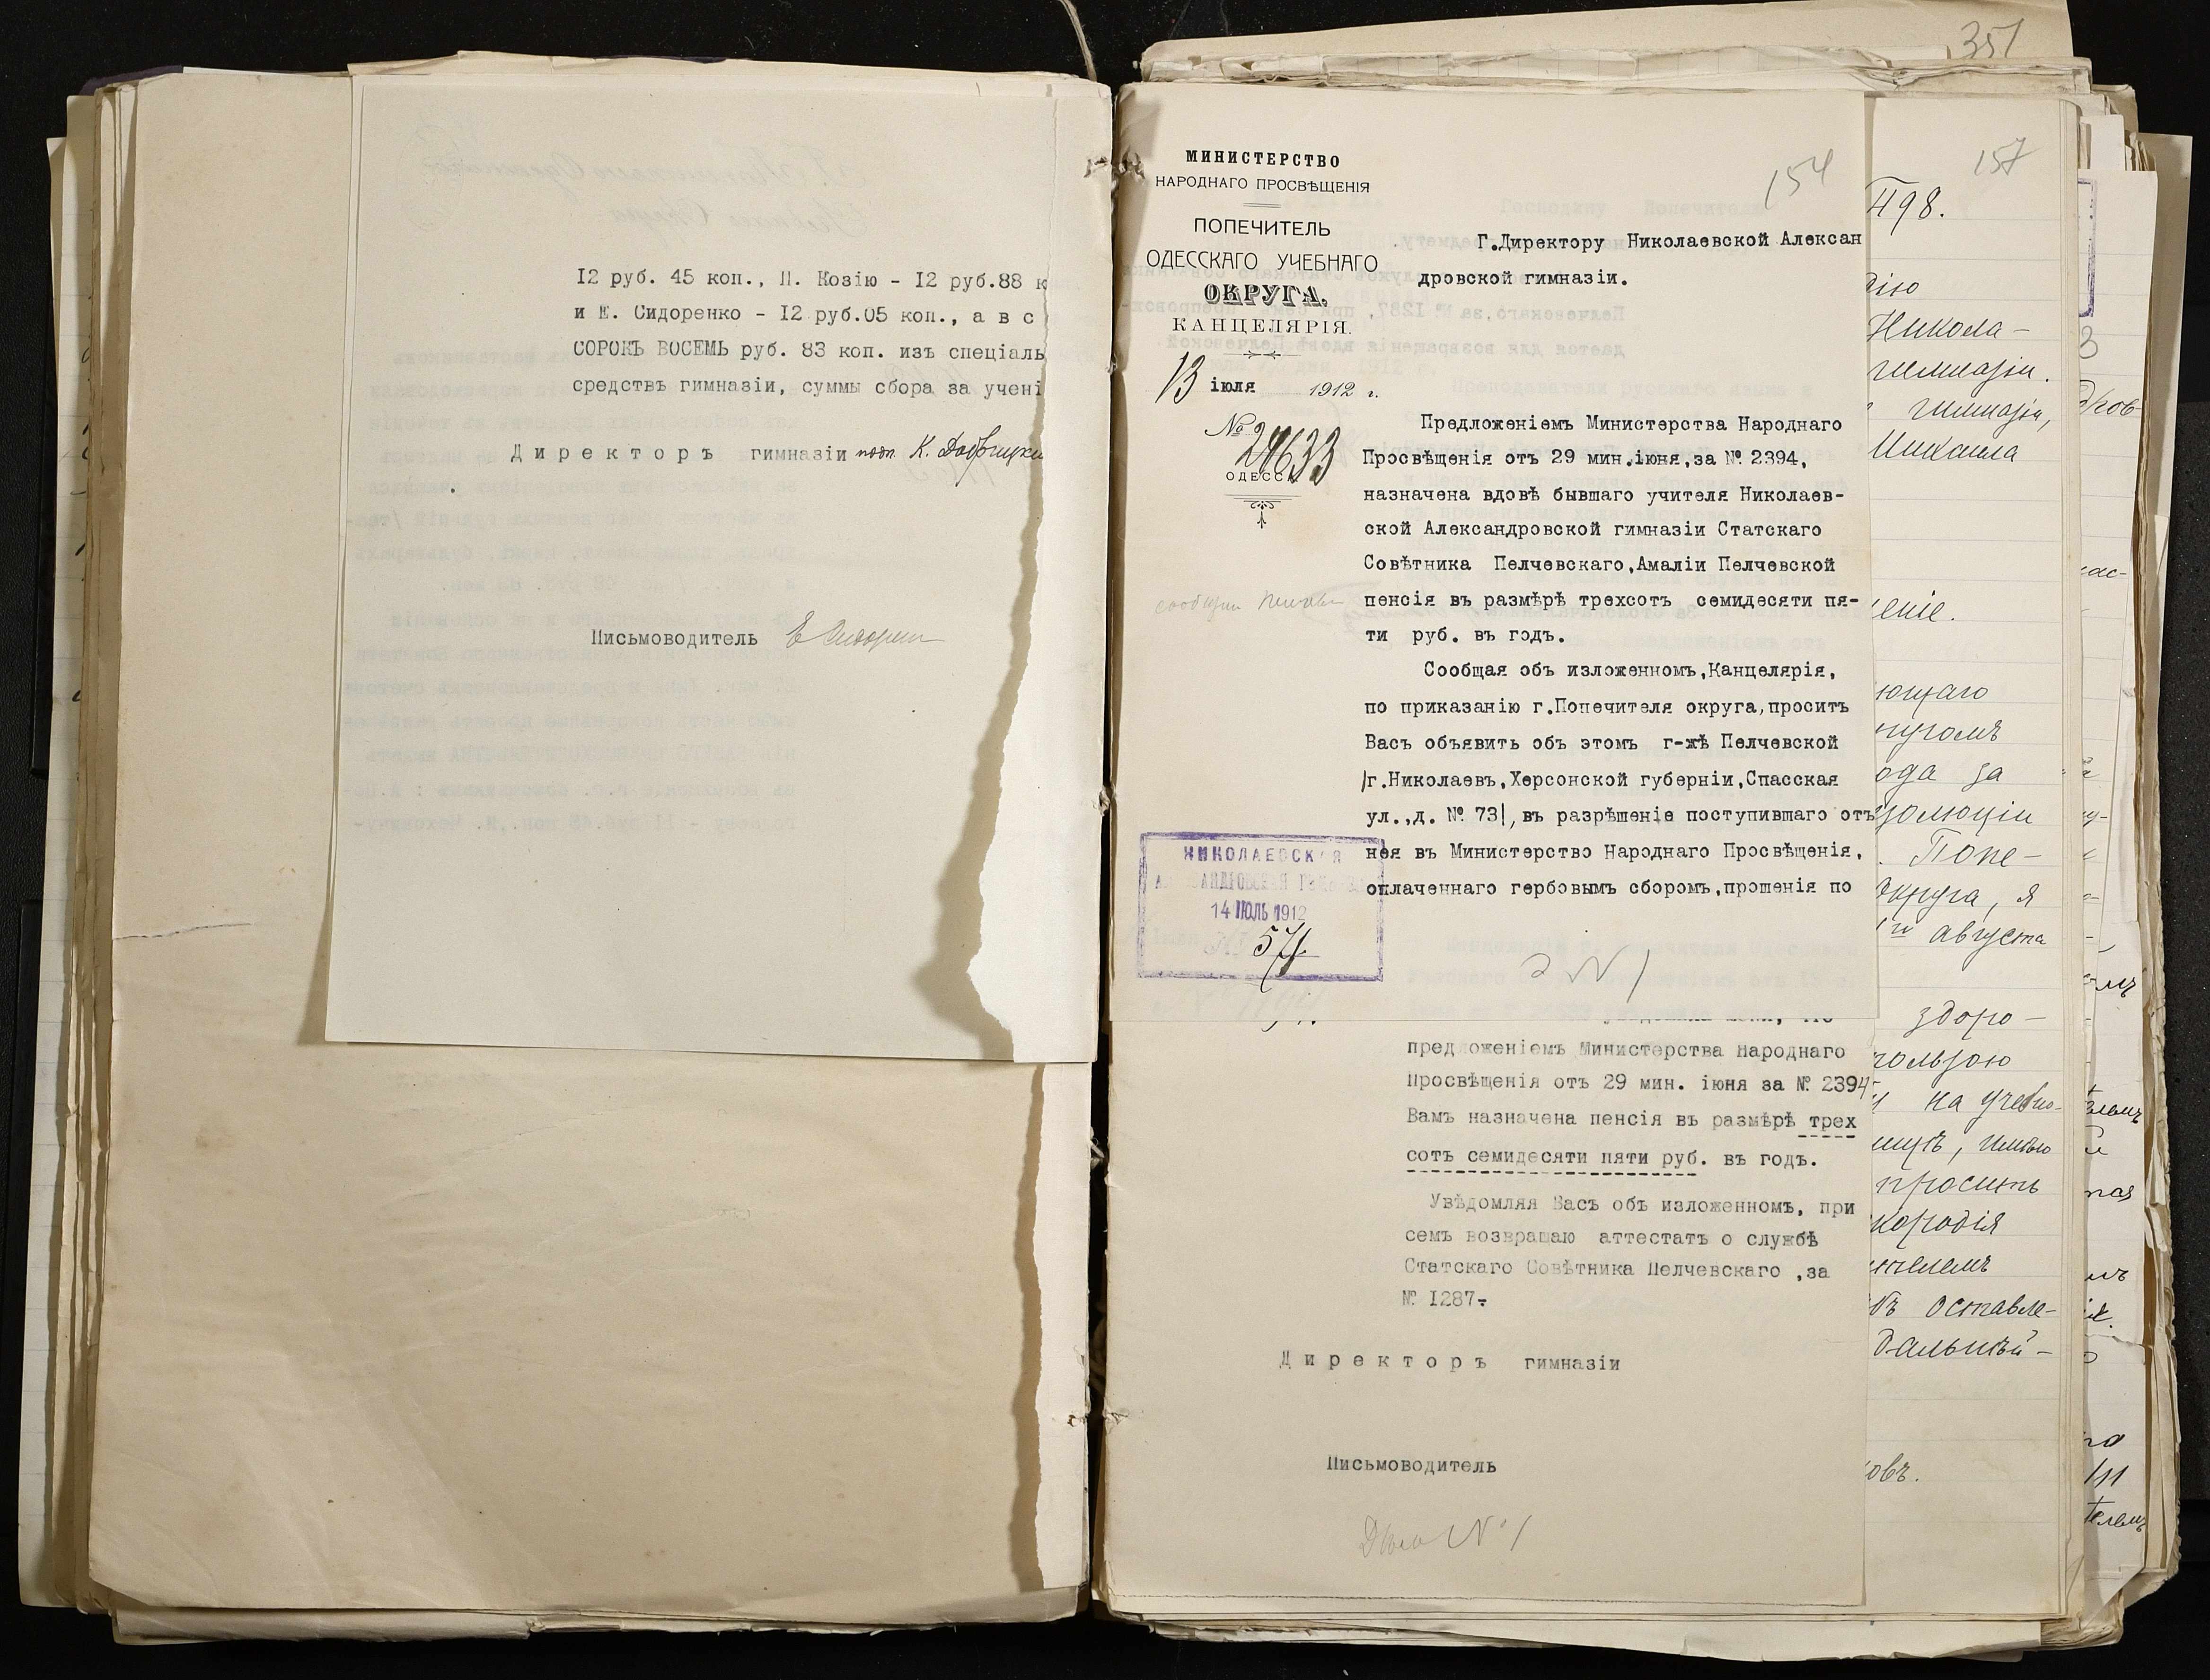 12 руб. 45 коп., П. Козію - 12 руб.88 к
и Е. Сидоренко - 12 руб.05 коп., а в с
СОРОКЪ ВОСЕМЬ руб. 83 коп. изъ спеціаль
средствъ гимназіи, суммы сбора за учені
Директоръ гимназіи подп. К.
Письмоводитель
351
154
МИНИСТЕРСТВО
НАРОДНАГО ПРОСВѢЩЕНІЯ
ПОПЕЧИТЕЛЬ
ОДЕССКАГО УЧЕБНАГО
ОКРУГА.
КАНЦЕЛЯРІЯ.
13 іюля 1912 г.
№ 24633
ОДЕССА
Г.Директору Николаевской Алексан
дровской гимназіи.
Предложеніемъ Министерства Народнаго
Просвѣщенія отъ 29 мин.іюня,за № 2394,
назначена вдовѣ бывшаго учителя Николаев-
ской Александровской гимназіи Статскаго
Совѣтника Пелчевскаго,Амаліи Пелчевской
пенсія въ размѣрѣ трехсотъ семидесяти пя-
ти руб. въ годъ.
Сообщая объ изложенномъ,Канцелярія,
по приказанію г.Попечителя округа,проситъ
Васъ объявить объ этомъ г-жѣ Пелчевской
/г.Николаевъ,Херсонской губерніи,Спасская
ул.,д. № 73/,въ разрѣшеніе поступившаго отъ
нея въ Министерство Народнаго Просвѣщенія,
оплаченнаго гербовымъ сборомъ,прошенія по
НИКОЛАЕВСКАЯ
АЛЕКСАНДРОВСКАЯ ГИМНАЗІЯ
14 ІЮЛЬ 1912
571
предложеніемъ Министерства Народнаго
Просвѣщенія отъ 29 мин. іюня за № 2394
Вамъ назначена пенсія въ размѣрѣ трех
сотъ семидесяти пяти руб. въ годъ.
Увѣдомляя Васъ объ изложенномъ, при
семъ возвращаю аттестатъ о службѣ
Статскаго Совѣтника Пелчевскаго ,за
№ 1287-
Директоръ гимназіи
Письмоводитель
Дѣло № 1
157
98.
Никола-
гимназіи.
гимназіи,
Михаила
еніе.
ющаго
ода за
золюціи
. Попе-
округа, я
августа
здоро-
пользою
на учебно-
имѣю
просить
кородія
оставле-
дальнѣй-
овъ.